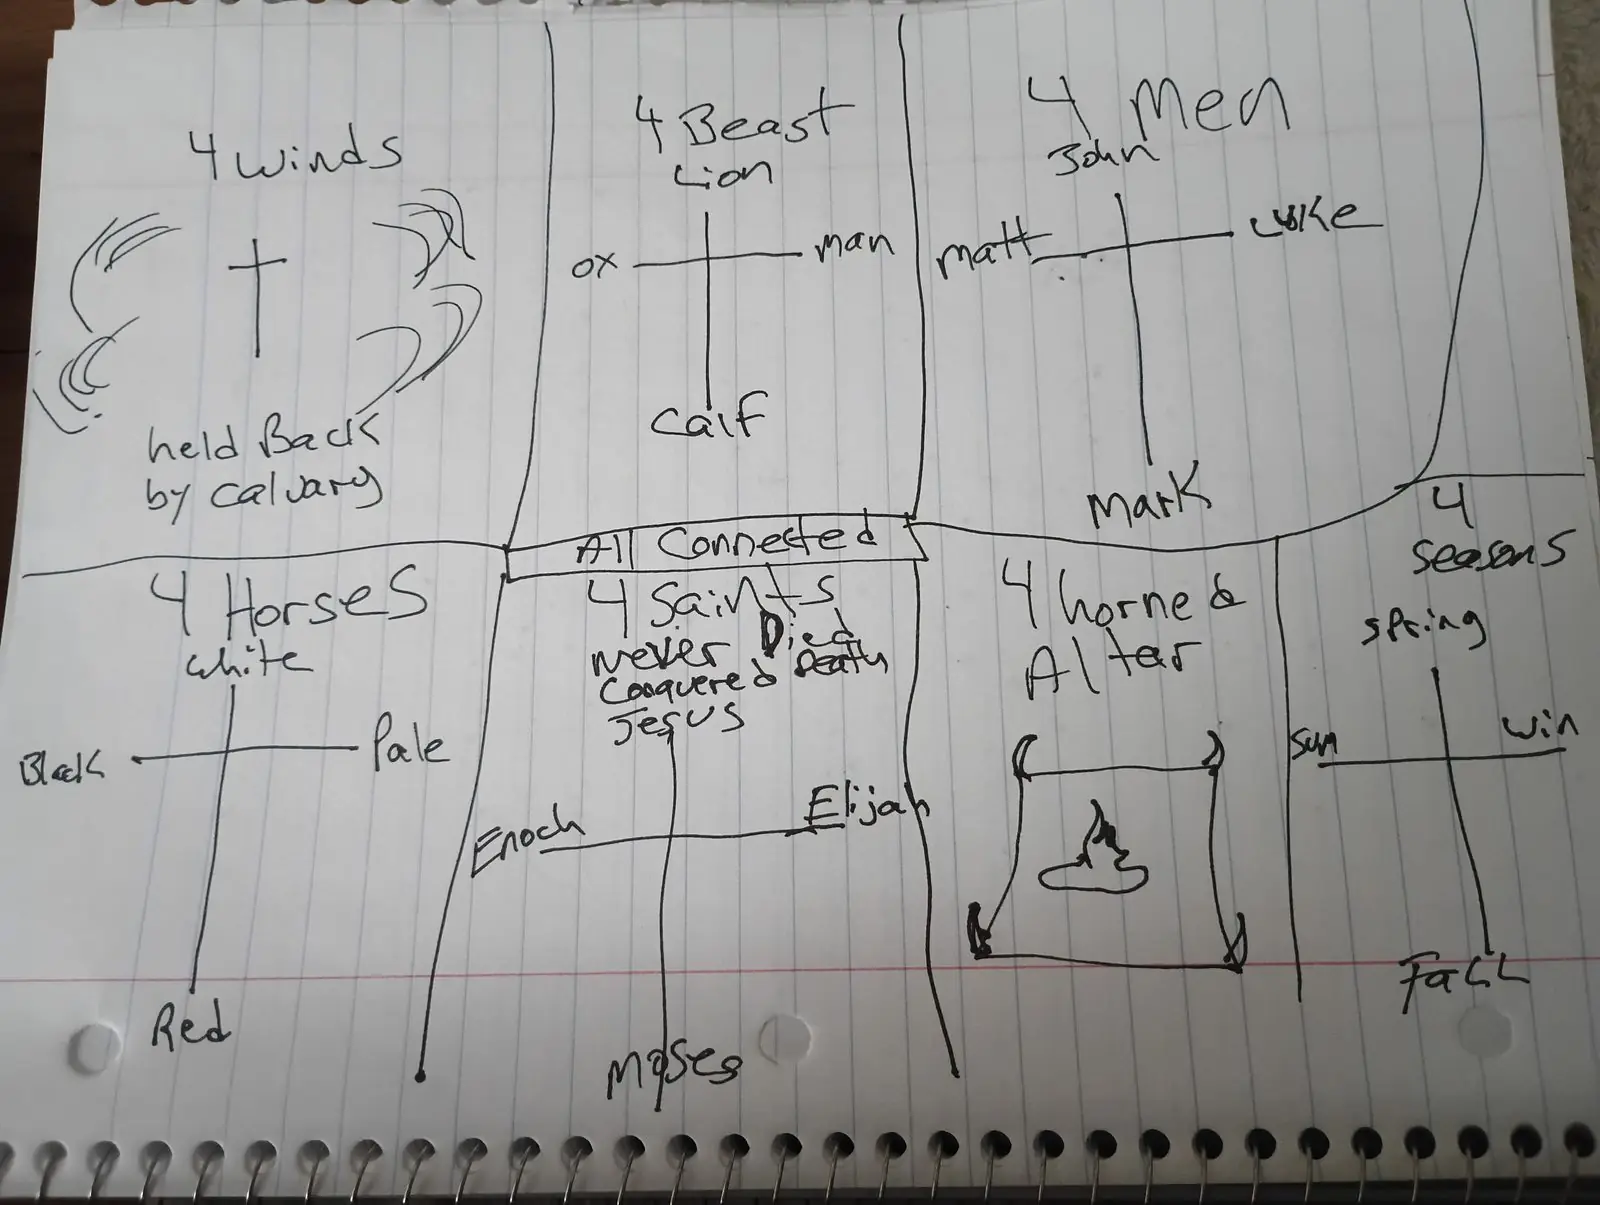 4 Winds
held Back
by Calvary
4 Beast
Lion
ox
man
Calf
4 Men
John
Matt
Luke
Mark
All Connected
4 Horses
White
Black
Pale
Red
4 Saints
never Died
Conquered Death
Jesus
Enoch
Elijah
Moses
4 horned
Altar
4
Seasons
Spring
Sum
Win
Fall